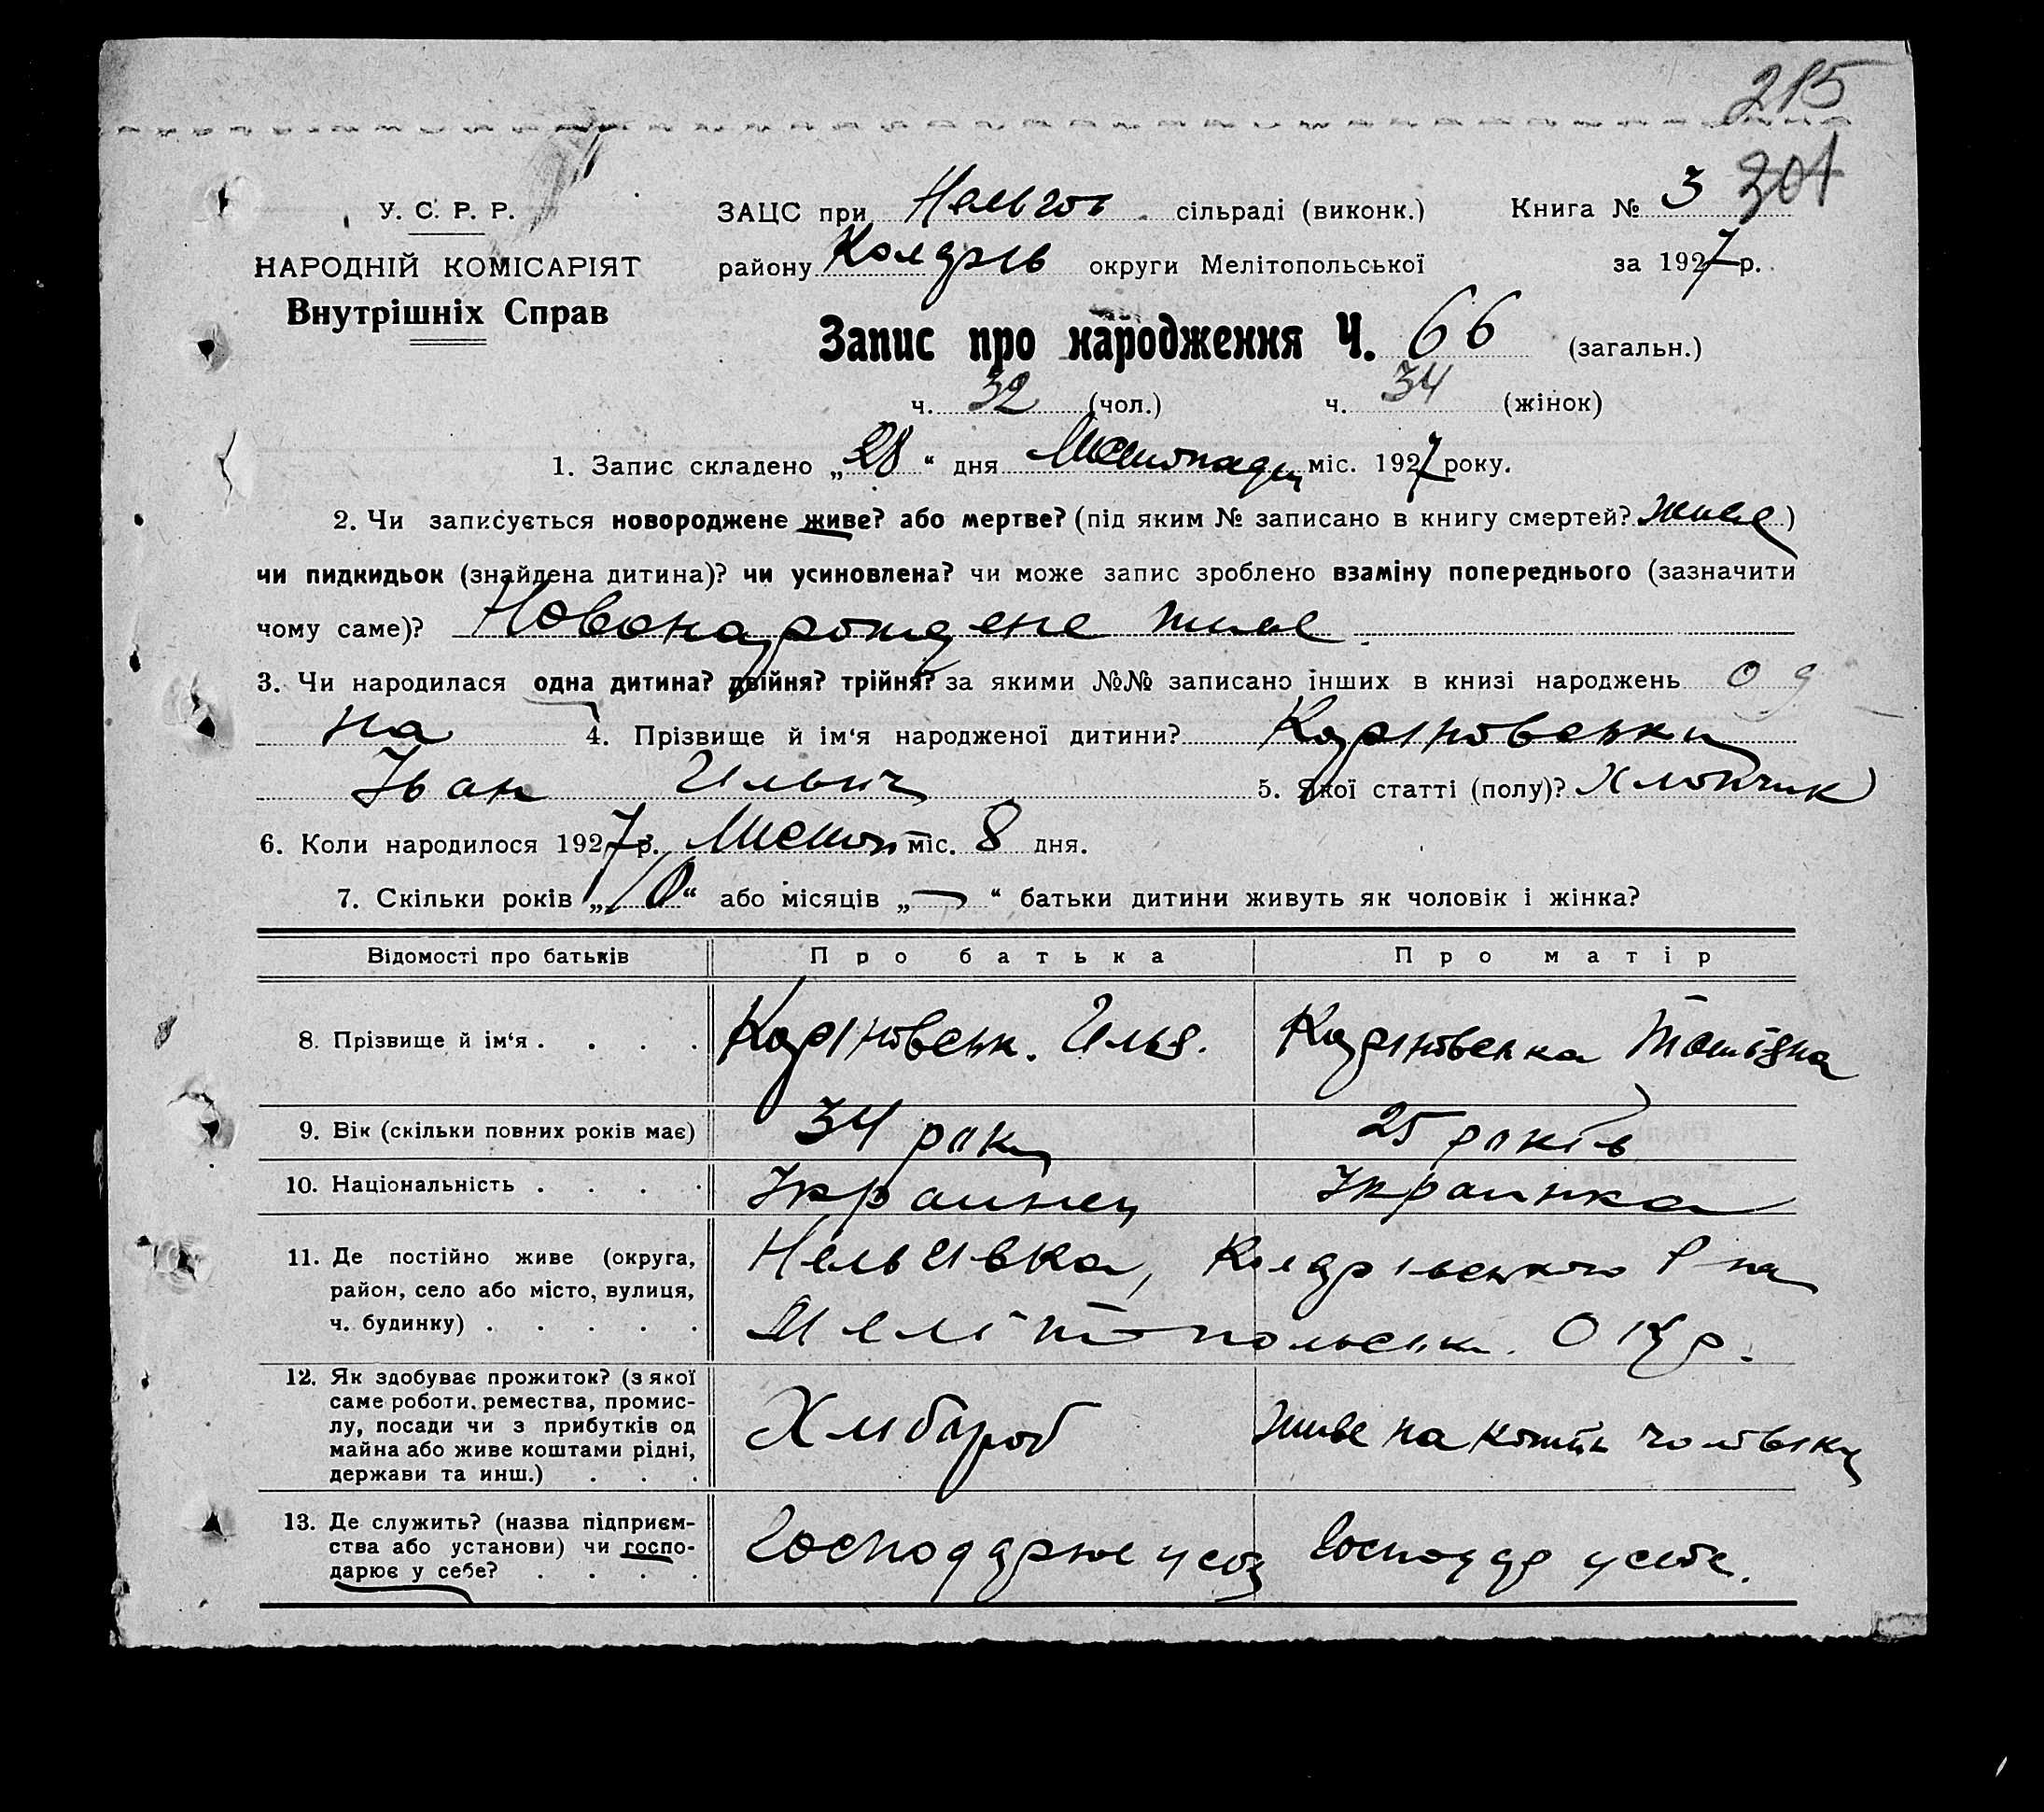 215
У. С. Р. Р. ЗАЦС при Нельгов. сільраді (виконк.) Книга № 3 201
НАРОДНІЙ КОМІСАРІЯТ району округи Мелітопольської за 1927 р.
Внутрішніх Справ
Запис про народження Ч. 66 (загальн.)
ч. 32 (чол.) ч. 34 (жінок)
1. Запис складено „28“ дня Листопаду міс. 1927 року.
2. Чи записується новороджене живе? або мертве? (під яким № записано в книгу смертей? живе)
чи пидкидьок (знайдена дитина)? чи усиновлена? чи може запис зроблено взаміну попереднього (зазначити
чому саме)? Новонарождене живе
3. Чи народилася одна дитина? двійня? трійня? за якими №№ записано інших в книзі народжень од
на 4. Прізвище й ім‘я народженої дитини?
Іван Ильич 5. Якої статті (полу)? Хлопчик
6. Коли народилося 1927 р. Листоп міс. 8 дня.
7. Скільки років „10“ або місяців „—“ батьки дитини живуть як чоловік і жінка?
Відомості про батьків Про батька Про матір
8. Прізвище й ім‘я . . . . Илья.
9. Вік (скільки повних років має) 34 роки 25 років
10. Національність . . . . Украинец Украинка
11. Де постійно живе (округа,
район, село або місто, вулиця,
ч. будинку) . . . . . Мелітопольськ. Окр.
12. Як здобуває прожиток? (з якої
саме роботи, ремества, промис-
лу, посади чи з прибутків од
майна або живе коштами рідні,
держави та инш.) . . . Хлібороб живе на кошти чоловіку
13. Де служить? (назва підприєм-
ства або установи) чи госпо-
дарює у себе? . . . . Господарює у себе Господар у себе.